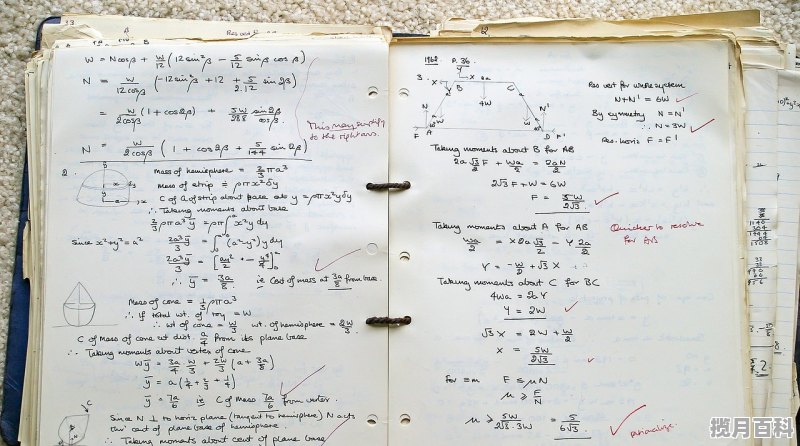 33
W = Ncosβ + W/12 (12 sin²β - 5/12 sinβ cosβ)
N = W/12cosβ (-12sin²β + 12 + 5/2.12 sin2β)
= W/2cosβ (1 + cos2β) + 5W/288 sin2β/cosβ.
This may simplify
to the right ans.
N = W/2cosβ (1 + cos2β + 5/144 sin2β)
2.
Mass of hemisphere = 2/3 πρa³
Mass of strip = ρπx²δy
C of G of strip about base as y = ρπx²yδy
∴ Taking moments about base
2/3 ρπa³ȳ = ∫ ρπx²y dy
Since x²+y² = a²
2a³ȳ/3 = ∫ (a²-y²)y dy
2a³ȳ/3 = [ay²/2 - y⁴/4]
∴ ȳ = 3a/8 ie C of mass at 3a/8 from base.
Mass of cone = 1/3 ρπa³
∴ If total wt. of toy = W
∴ wt of cone = W/3 wt. of hemisphere = 2W/3
C of Mass of cone at dist. a/4 from its plane base
∴ Taking moments about vertex of cone
Wȳ = 3a/4 W/3 + 2W/3 (a + 3a/8)
ȳ = a(1/4 + 2/3 + 1/4)
ȳ = 7a/6 ie C of mass 7a/6 from vertex.
C
Since N ⊥ to horiz plane (tangent to hemisphere) N acts
thro' cent of plane base of hemisphere.
∴ Taking moments about cent of plane base
1968 P. 36
3.
X
B
C
4W
N
N'
W
F
A
D
F'
Res vert for whole system
N+N' = 6W
By symmetry N = N'
∴ N = 3W
Res. horiz F = F'
Taking moments about B for AB
2a√3/2 F + Wa/2 = 2aN/2
2√3F + W = 6W
F = 5W/2√3
Taking moments about A for AB
Quicker to resolve
for AB
Wa/2 = X2a√3/2 - Y2a/2
Y = -W/2 + √3 X
Taking moments about C for BC
4Wa = 2aY
Y = 2W
√3X = 2W + W/2
X = 5W/2√3
for F ≤ μN
μ ≥ F/N
μ ≥ 5W/2√3.3W = 5/6√3
rationalize.
揽月百科